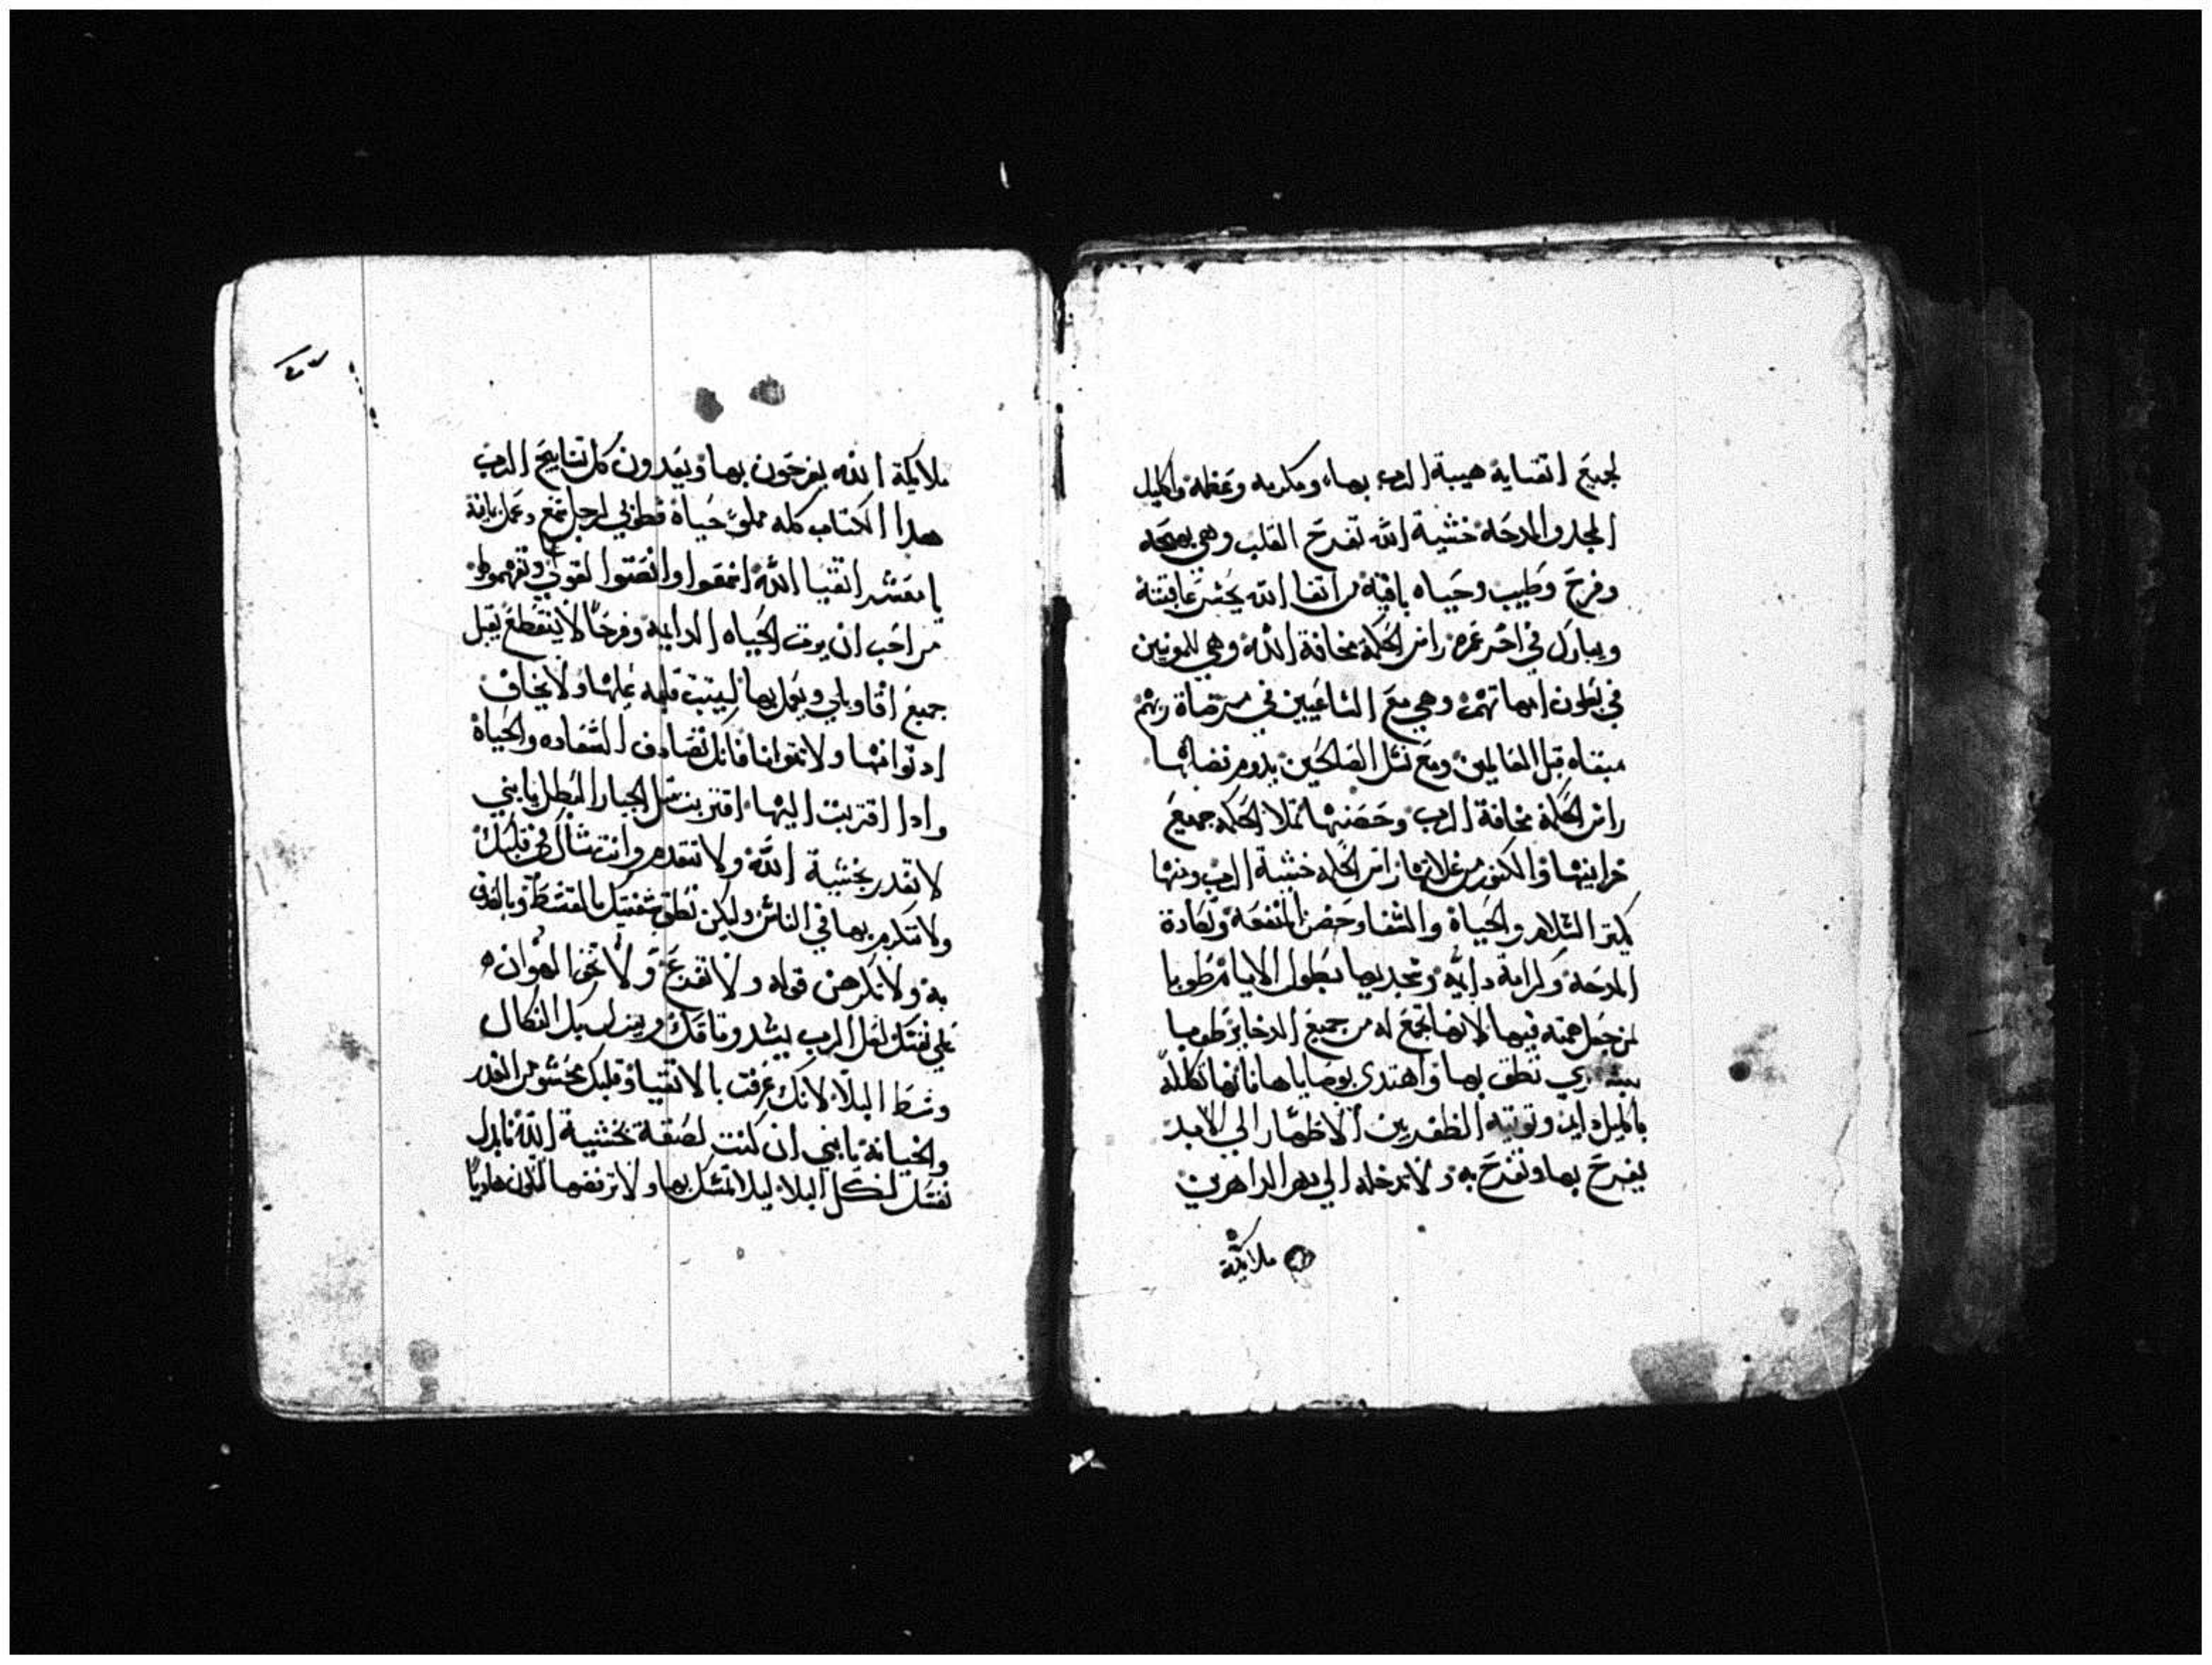 لجميع اتقيايه هيبة الرب بهاء ومكرمه وعظمه واكليل
المجد والمدحه خشية الله تفرح القلب وهي بهجه
وفرح وطيب وحياه باقية من اتقا الله يحسن عاقبته
ويبارك في اخر عمره راس الحكمة مخافة الله وهي للمومنين
في بطون امهاتهم وهي مع الساعيين في مرضاة ربهم
مبتناه قبل العالمين ومع نسل الصالحين يدوم
راس الحكمة مخافة الرب وحضنها تملا الحكمه جميع
خزاينها والكنوز من غلاتها راس الحكمه خشية الرب ومنها
يكتر السلام والحياة والشفا وحضن المنفعه وتكادة
المدحة وكرامة دايمة وتمجد بها بطول الايام طوبا
لمن جعل همته فيها لانها تجمع له من جميع الدخاير طوبا
تطق بها واهتدى بوصاياها فانها تكلله
باكليل دايم وتوتيه الظفر بين الاظهار الي الابد
يفرح بها وتفرح به ولا تدخله الي دهر الداهرين
ملايكة
ملايكة الله يفرحون بها ويعدون كل تسابيح الرب
هدا الكتاب كله مملو حياة فطوبي لرجل سمع وعمل بما فيه
يا معشر اتقيا الله اسمعوا وانصتوا لقولي وتفهموا
من احب ان يرت الحياه الدايمة وفرحا لا ينقطع يقبل
جميع اقاويلي ويعمل بها ليتبت قلبه عليها ولا يخاف
ادنوا منها ولا تتوانا فانك تصادف السعاده والحياة
وادا اقتربت اليها اقتربت متل الجبار البطل يا بني
لا تغدر بخشية الله ولا تتقدم وانت شاك في قلبك
ولا تتكرم بها في الناس وليكن نطق شفتيك بالقسط
به ولا تكرهن قوله ولا تفزع ولا الهوان
علي نفسك لعل الرب يشد وتاقك وينزل بك النكال
وسط البلا لانك عرفت بالاتقيا وقلبك محشو من الغدر
والخيانة يا بني ان كنت لصقة بخشية الله فابدل
نفسك لكل البلا ليلا تمسك بها ولا ترفضها